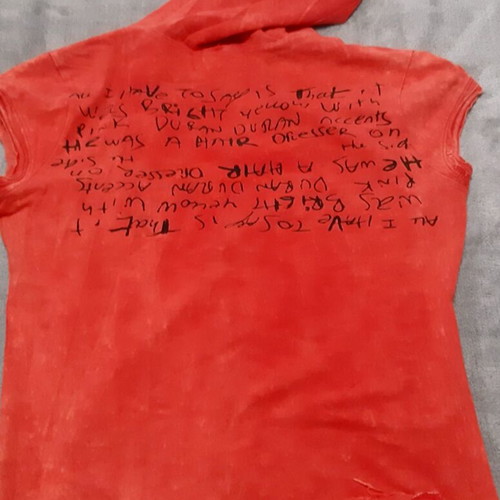 All I HAVE TO SAY IS THAT it
WAS BRIGHT yellow WITH
PINK DURAN DURAN Accents
HE WAS A HAIR DRESSER ON
THE SIDE
THE SIDE
HE WAS A HAIR DRESSER ON
PINK DURAN DURAN Accents
WAS BRIGHT yellow WITH
All I HAVE TO SAY IS THAT it